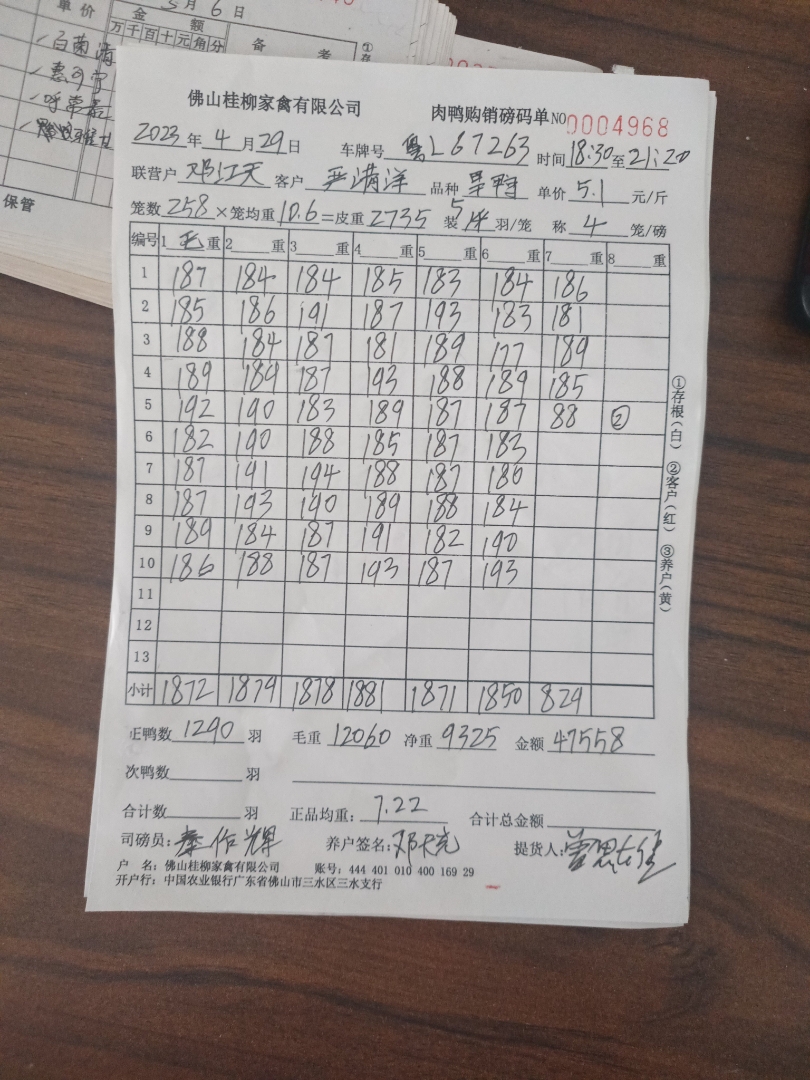 单价
3月6日
金额
万千百十元角分
备考
保管
佛山桂柳家禽有限公司 肉鸭购销磅码单 NO 0004968
2023年4月29日 车牌号 粤L67263 时间18:30至21:20
联营户 邓江天 客户 严满洋 品种 旱鸭 单价 5.1 元/斤
笼数258×笼均重10.6=皮重2735 装 5 羽/笼 称 4 笼/磅
编号 1毛重 2 重 3 重 4 重 5 重 6 重 7 重 8 重
1 187 184 184 185 183 184 186
2 185 186 191 187 193 183 181
3 188 184 187 181 189 177 189
4 189 189 187 193 188 189 185
5 192 190 183 189 187 187 88 ②
6 182 190 188 185 187 183
7 187 191 194 188 187 180
8 187 193 190 189 188 184
9 189 184 187 191 182 190
10 186 188 187 193 187 193
11
12
13
小计 1872 1879 1878 1881 1871 1850 829
正鸭数 1290 羽 毛重 12060 净重 9325 金额 47558
次鸭数 羽
合计数 羽 正品均重: 7.22 合计总金额
司磅员: 秦作辉 养户签名: 提货人:
户 名: 佛山桂柳家禽有限公司 账号: 444 401 010 400 169 29
开户行: 中国农业银行广东省佛山市三水区三水支行
①存根(白) ②客户(红) ③养户(黄)